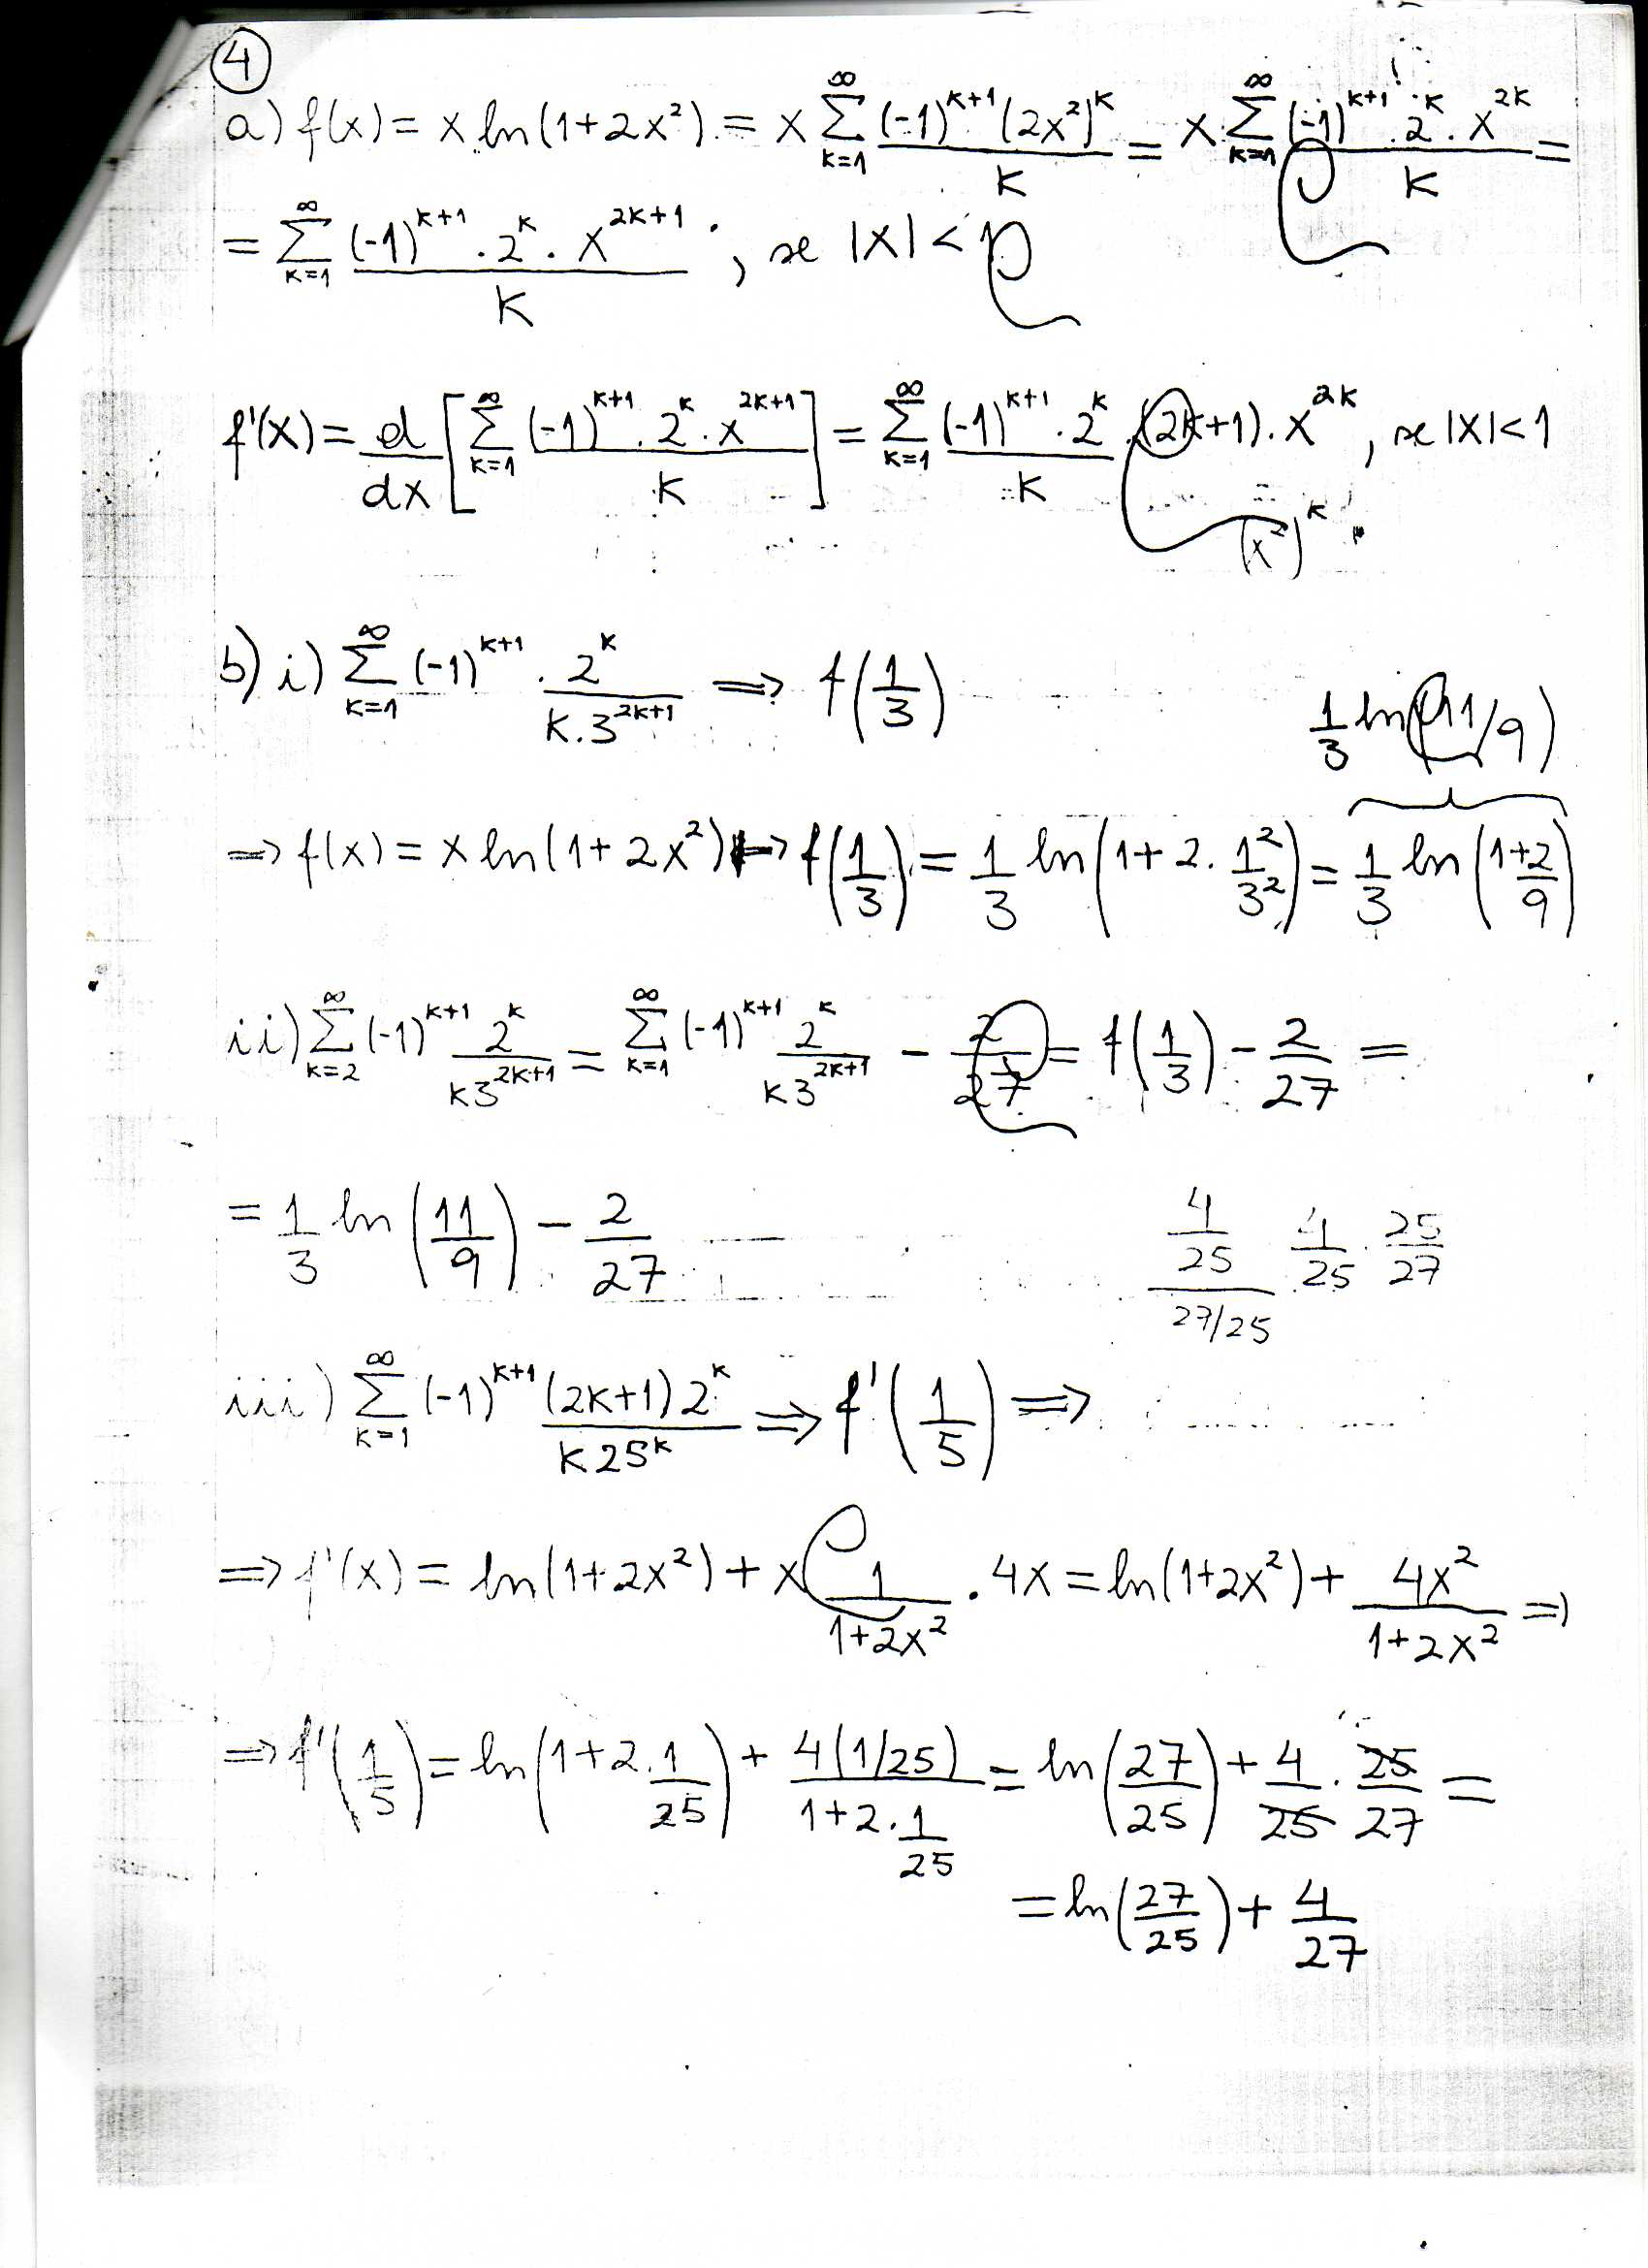 ④
a) f(x) = x ln(1+2x²) = x ∑_{k=1}^{∞} (-1)^{k+1} (2x²)^k / k = x · ∑_{k=1}^{∞} (-1)^{k+1} · 2^k · x^{2k} / k =
= ∑_{k=1}^{∞} (-1)^{k+1} · 2^k · x^{2k+1} / k ; se |x| < 1
f'(x) = d/dx [∑_{k=1}^{∞} (-1)^{k+1} · 2^k · x^{2k+1} / k] = ∑_{k=1}^{∞} (-1)^{k+1} · 2^k / k · (2k+1) · x^{2k}, se |x| < 1
(x²)^k
b) i) ∑_{k=1}^{∞} (-1)^{k+1} · 2^k / (k.3^{2k+1}) => f(1/3)
1/3 ln(11/9)
=> f(x) = x ln(1+2x²) => f(1/3) = 1/3 ln(1+2 · 1²/3²) = 1/3 ln((1+2)/9)
ii) ∑_{k=2}^{∞} (-1)^{k+1} 2^k / (k3^{2k+1}) = ∑_{k=1}^{∞} (-1)^{k+1} 2^k / (k3^{2k+1}) - 2/27 = f(1/3) - 2/27 =
= 1/3 ln(11/9) - 2/27
4/25 / 27/25 4/25 · 25/27
iii) ∑_{k=1}^{∞} (-1)^{k+1} (2k+1) 2^k / (k25^k) => f'(1/5) =>
=> f'(x) = ln(1+2x²) + x 1/(1+2x²) · 4x = ln(1+2x²) + 4x²/(1+2x²) =>
=> f'(1/5) = ln(1+2·1/25) + 4(1/25) / (1+2·1/25) = ln(27/25) + 4/25 · 25/27 =
= ln(27/25) + 4/27